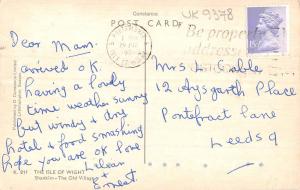 Constance
POST CARD
UK 9378
Be proper
address
Dear Mam.
arrived OK.
having a lovely
time weather sunny
but windy & dry
hotel & food smashing
hope you are OK love
Lilean
& Ernest
Mrs L Cable
12 Aysgarth Place
Pontefract Lane
Leeds 9
K. 211 THE ISLE OF WIGHT
Shanklin—The Old Village